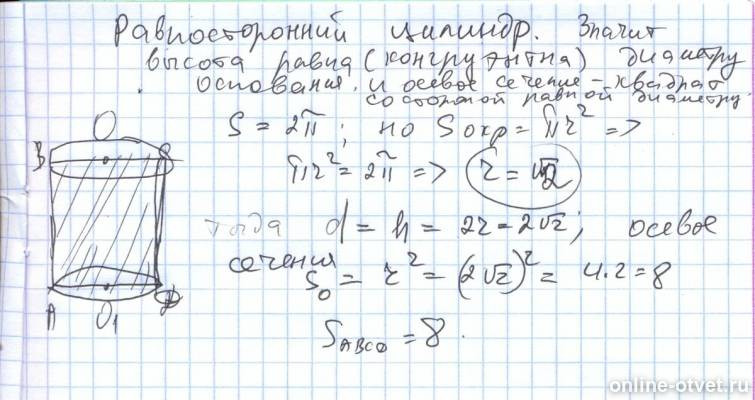 Равносторонний цилиндр. Значит
высота равна (конгруэнтна) диаметру
основания. и осевое сечение - квадрат
со стороной равной диаметру.
S = 2π; но Sокр = πr² =>
πr² = 2π => r = √2
тогда d = h = 2r = 2√2; осевое
сечения
S₀ = r² = (2√2)² = 4·2 = 8
S ABCD = 8.
O
B
A O₁ D
online-otvet.ru